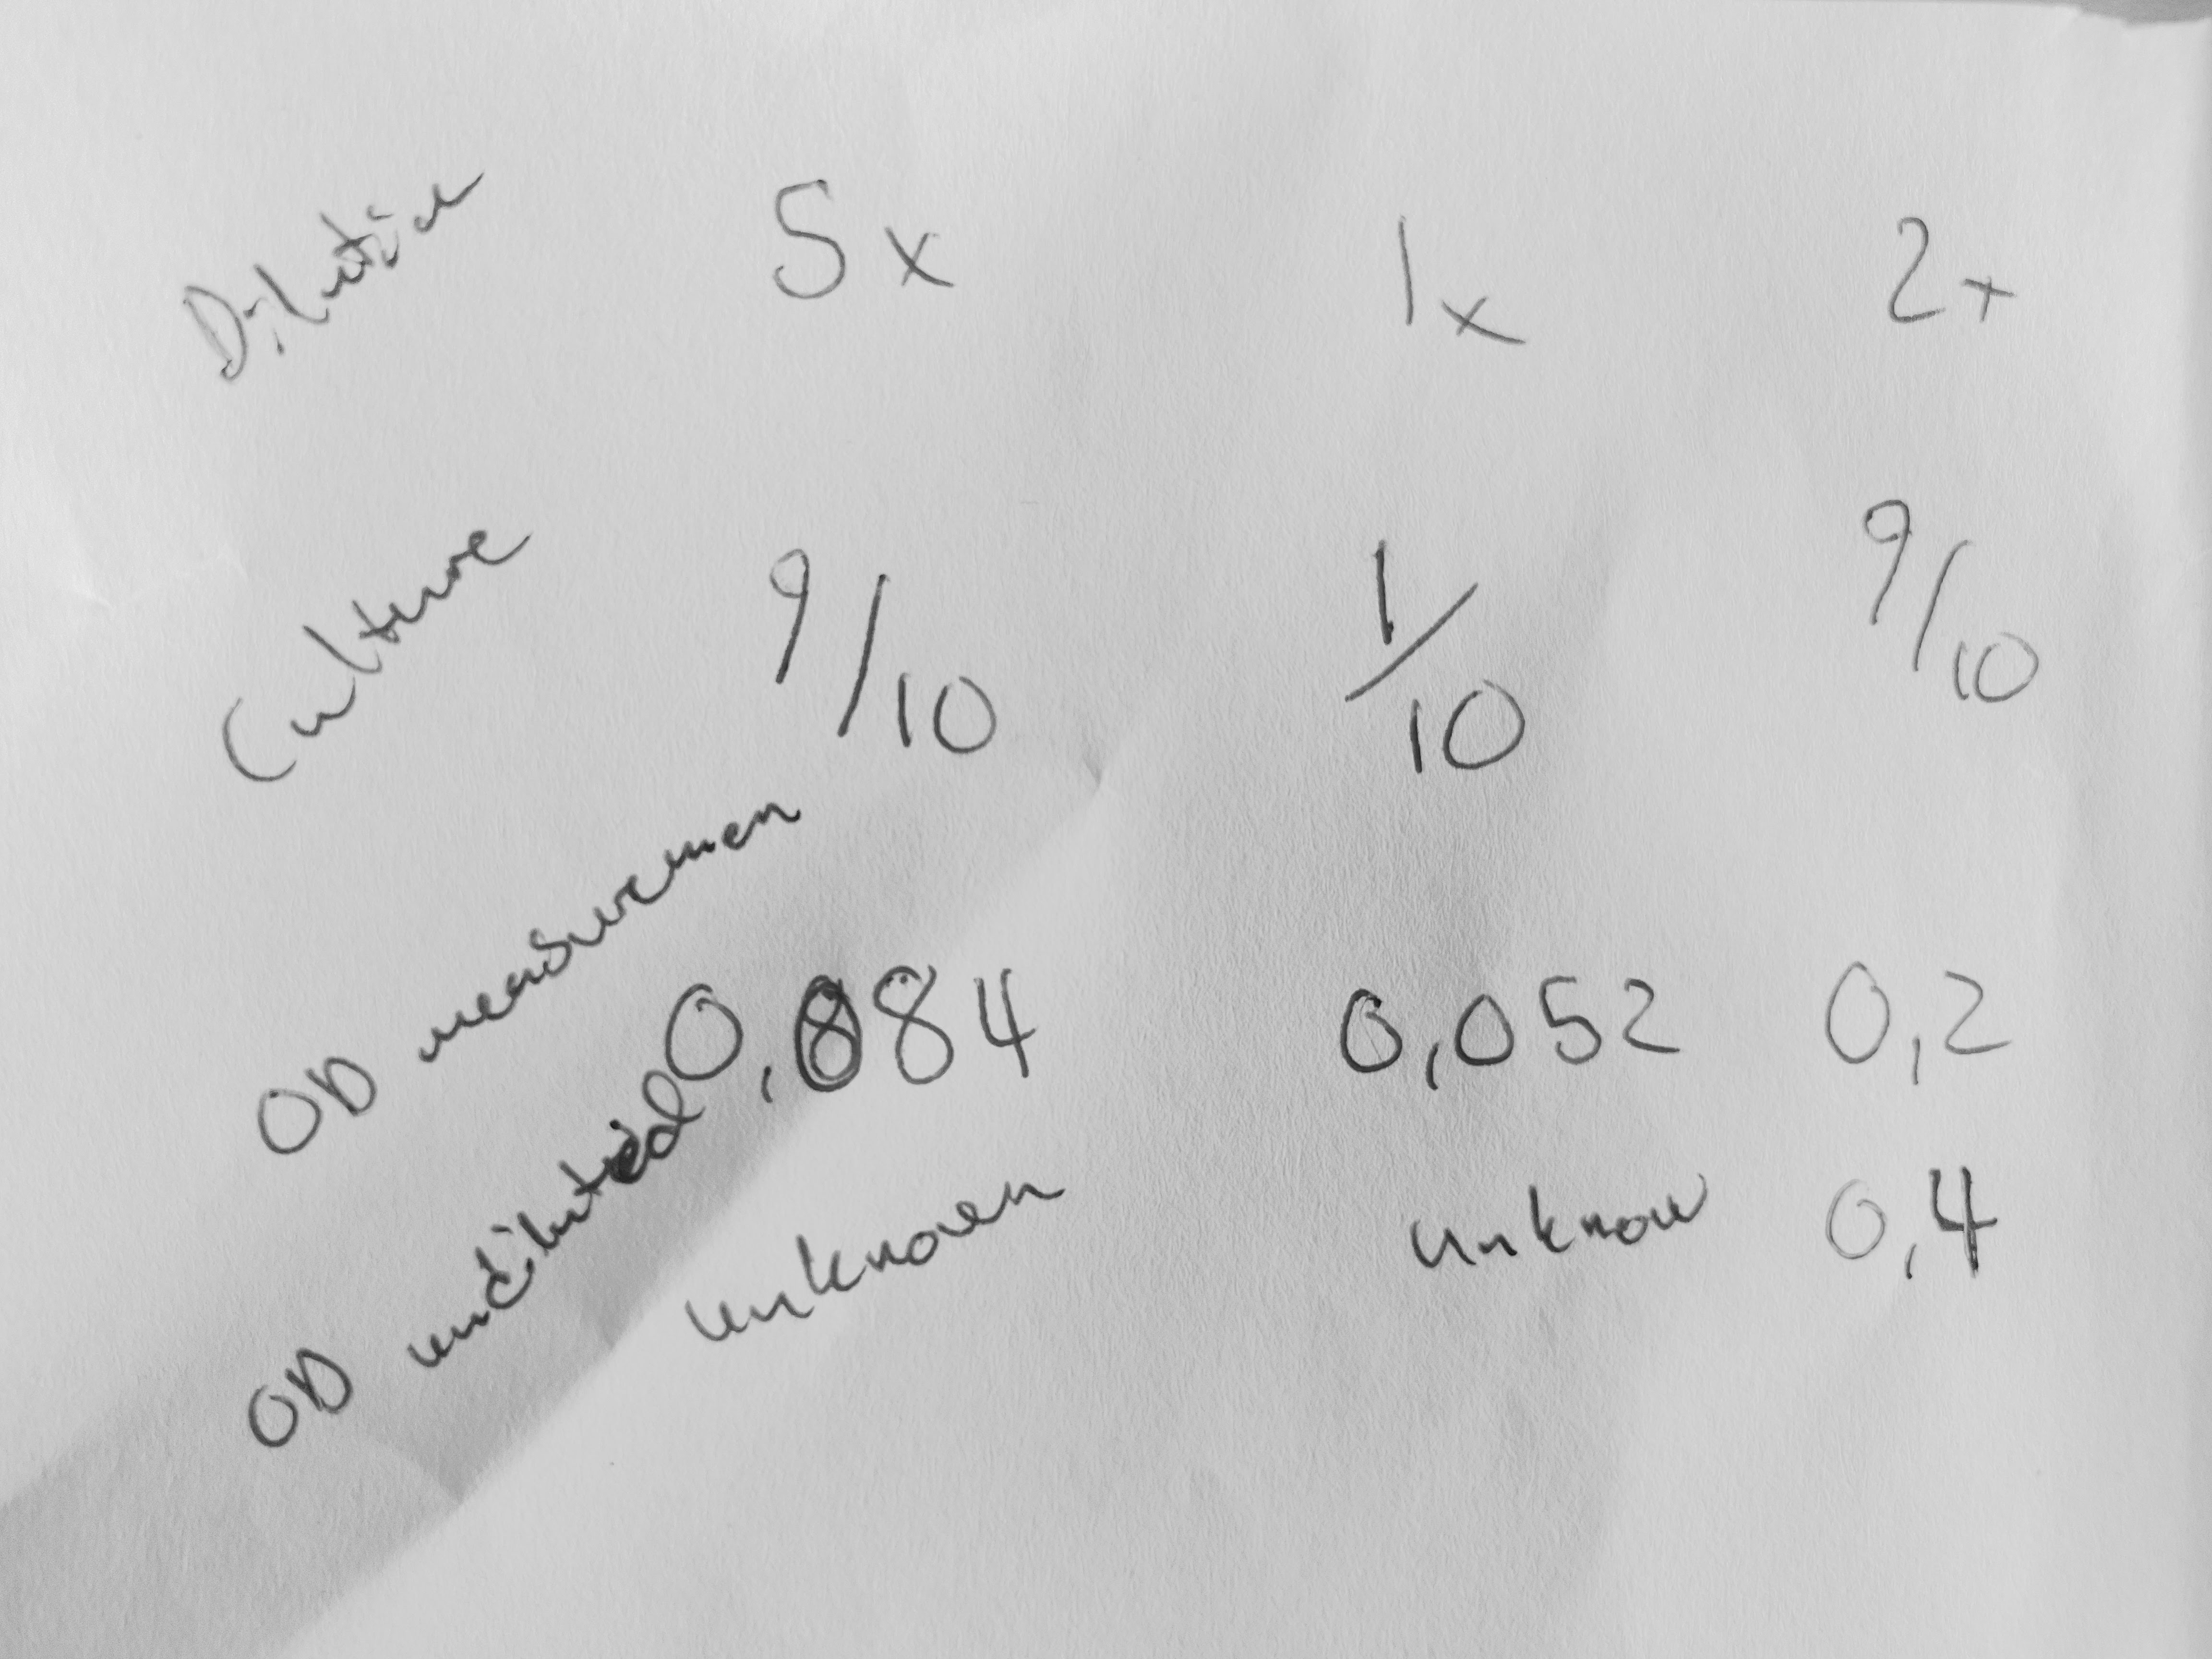 Dilution 5x 1x 2x
Culture 9/10 1/10 9/10
OD measuremen 0,084 0,052 0,2
OD undiluted unknown unknow 0,4